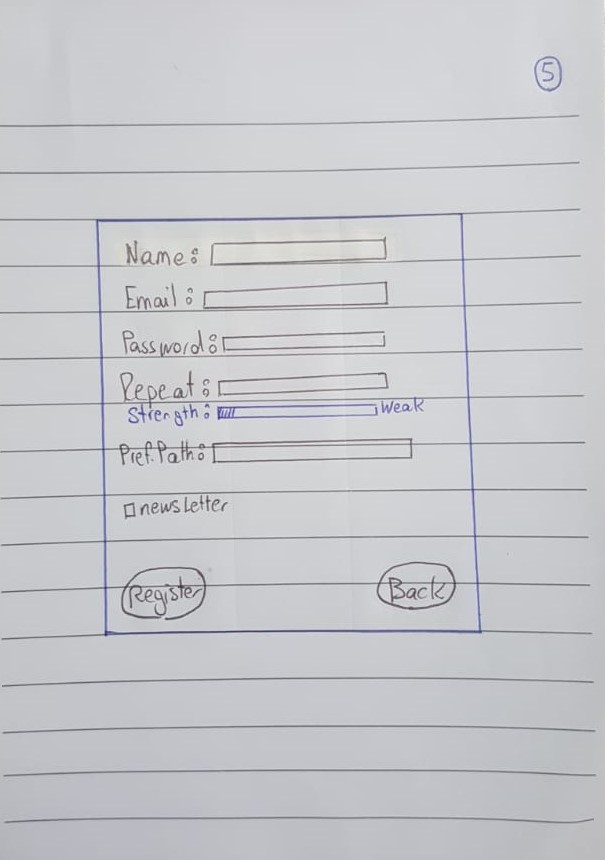 5
Name:
Email:
Password:
Repeat:
Strength: Weak
Pref.Path:
newsLetter
Register Back